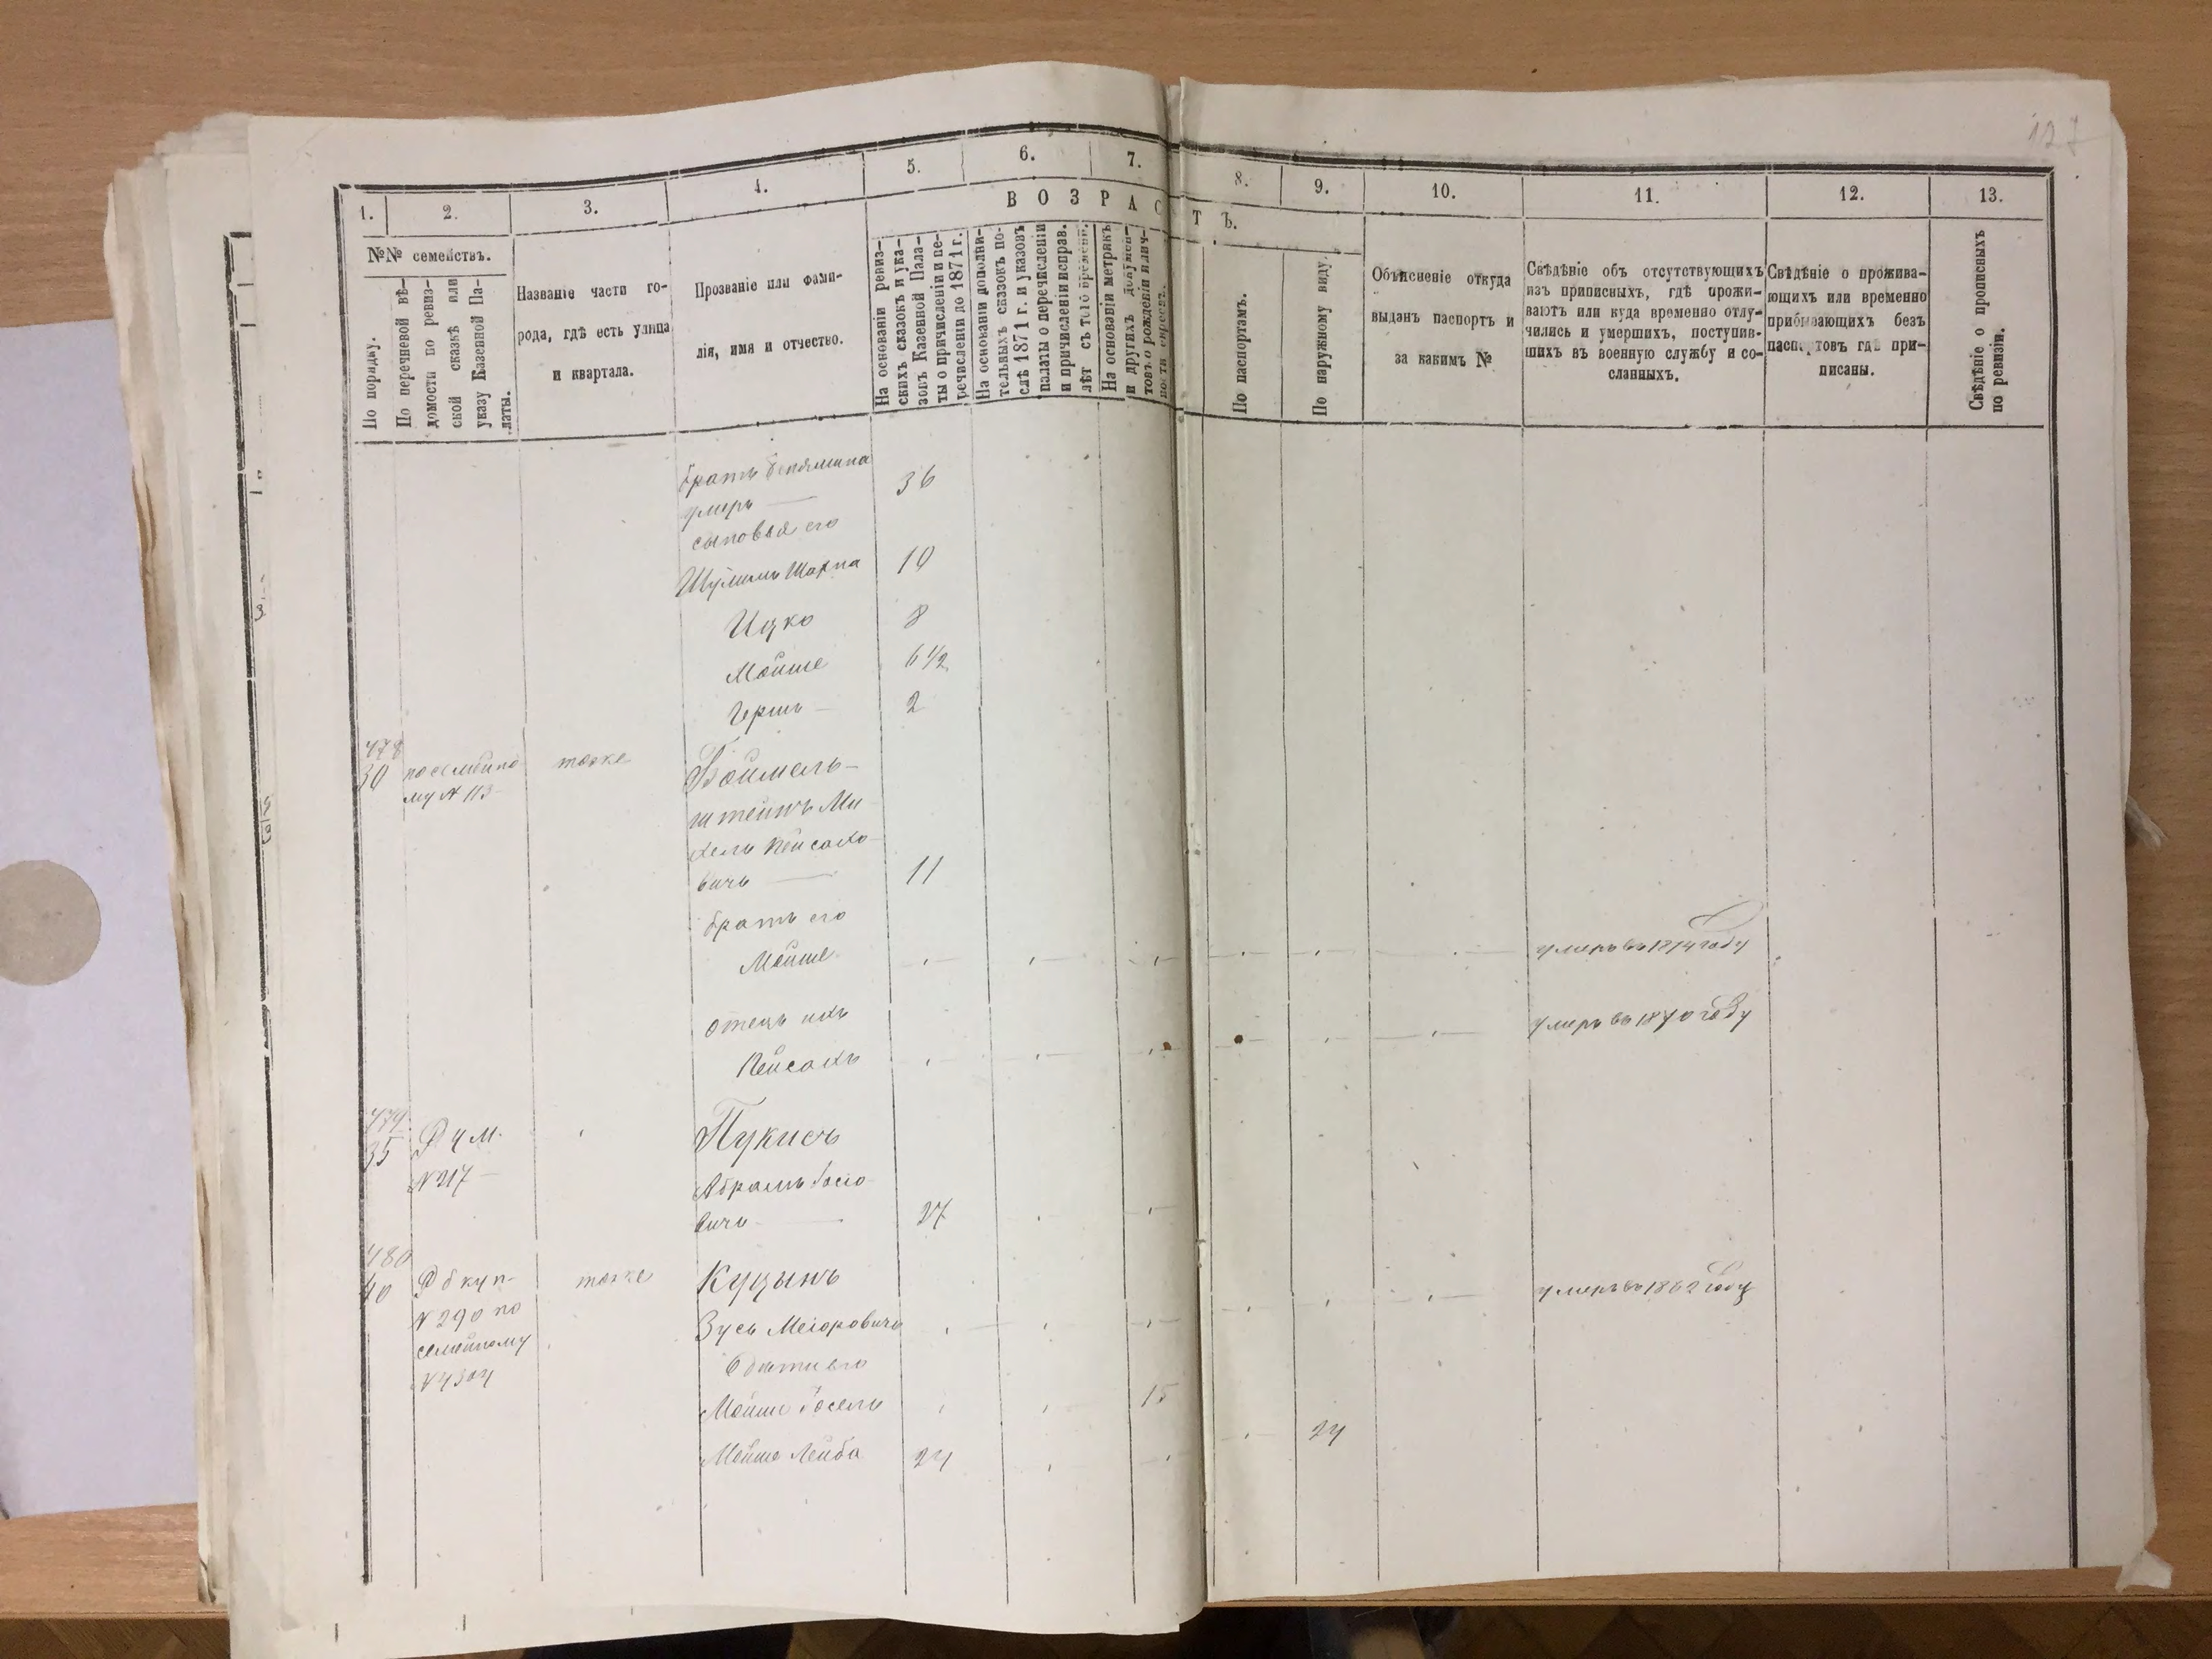 127
1.
2.
3.
4.
5.
6.
7.
8.
9.
10.
11.
12.
13.
ВОЗРАСТЪ.
№№ семействъ.
По порядку.
По перечневой вѣ-
домости по ревиз-
ской сказкѣ или
указу Казенной Па-
латы.
Названіе части го-
рода, гдѣ есть улица
и квартала.
Прозваніе или фами-
лія, имя и отчество.
На основаніи ревиз-
скихъ сказокъ и ука-
зовъ Казенной Пала-
ты о причисленіи и пе-
речисленіи до 1871 г.
На основаніи дополни-
тельныхъ сказокъ по-
слѣ 1871 г. и указовъ
палаты о перечисленіи
и причисленіи исправ.
лѣт съ того времени.
На основаніи метрикъ
и другихъ докумен-
товъ о рожденіи и лич-
ности
По паспортамъ.
По наружному виду.
Объясненіе откуда
выданъ паспортъ и
за какимъ №
Свѣдѣніе объ отсутствующихъ
изъ приписныхъ, гдѣ прожи-
ваютъ или куда временно отлу-
чились и умершихъ, поступив-
шихъ въ военную службу и со-
сланныхъ.
Свѣдѣніе о прожива-
ющихъ или временно
прибывающихъ безъ
паспортовъ гдѣ при-
писаны.
Свѣдѣніе о прописныхъ
по ревизіи.
братъ Беніамина
умеръ — 36
сыновья его
Шулимъ Шахна 10
Ицко 8
Мойше 6½
Гершъ — 2
478
30 по семейно- тоже Боймель-
му № 113 штейнъ Ми-
хель Пейсахо-
вичъ — 11
братъ его
Мойше умеръ въ 1874 году
отецъ ихъ умеръ въ 1870 году
Пейсахъ
479
35 Дум. Пукисъ
№ 217 —
Абрамъ Іосіо-
вичъ — 27
480
40 тоже Куцынъ умеръ въ 1862 году
№ 290 по Зусь Меіоровичъ
семейному
№ 4304 Мойше Іосель 15
Мойше Лейба 24 24